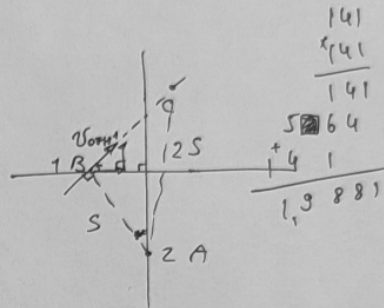 141
×141
141
5 64
+
141
1,9881
1 B
2S
S
2 A